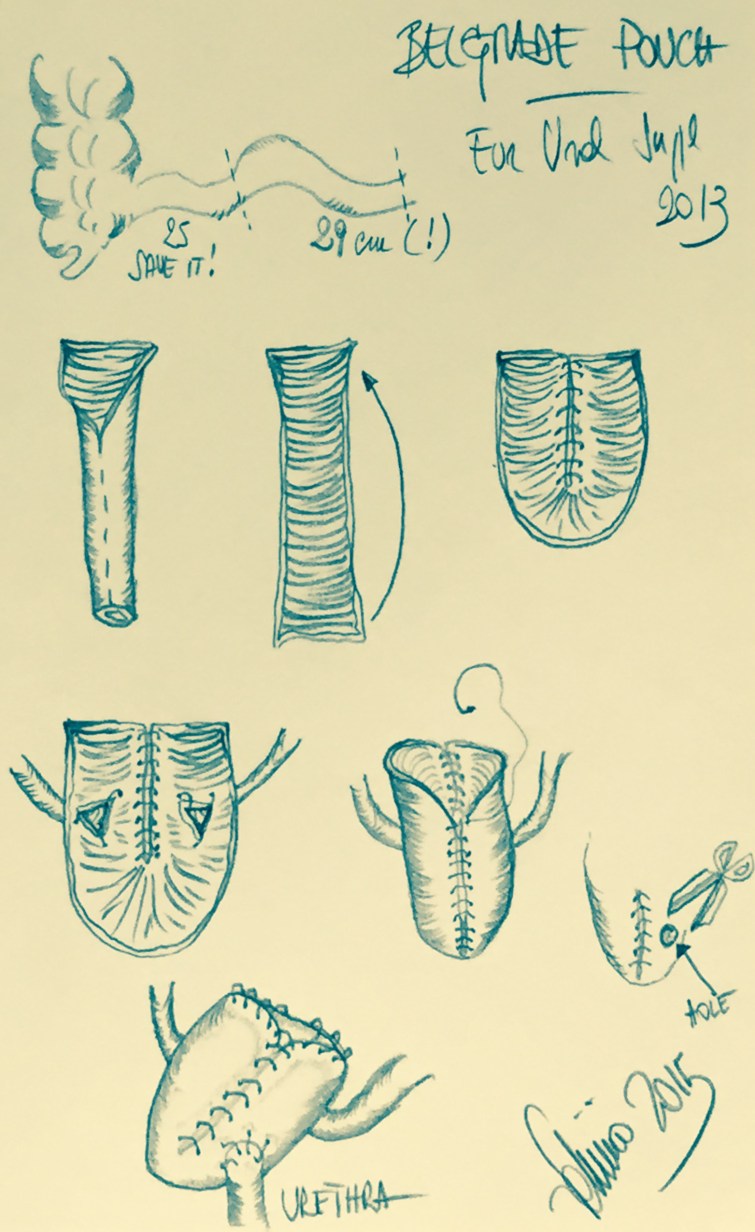 BELGRADE POUCH
Eur Urol Suppl
2013
25
SAVE IT!
29 cm (!)
HOLE
2015
URETHRA